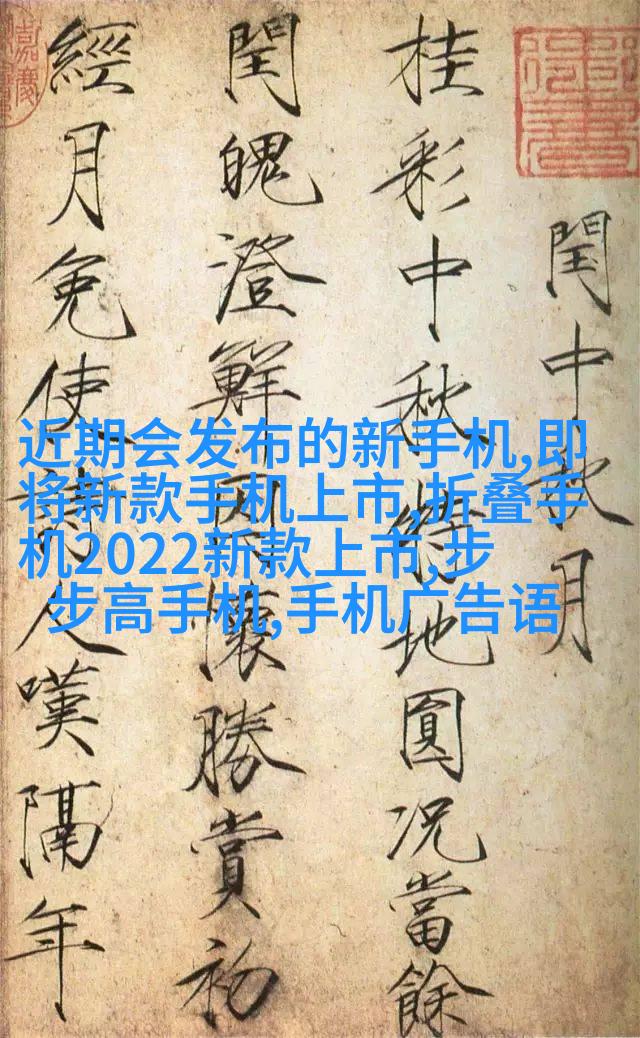 閏中秋月
桂彩中秋特地圓况當餘
閏魄澄鮮因懷勝賞初
經月免使詩人嘆隔年
近期会发布的新手机,即
将新款手机上市,折叠手
机2022新款上市,步
步高手机,手机广告语